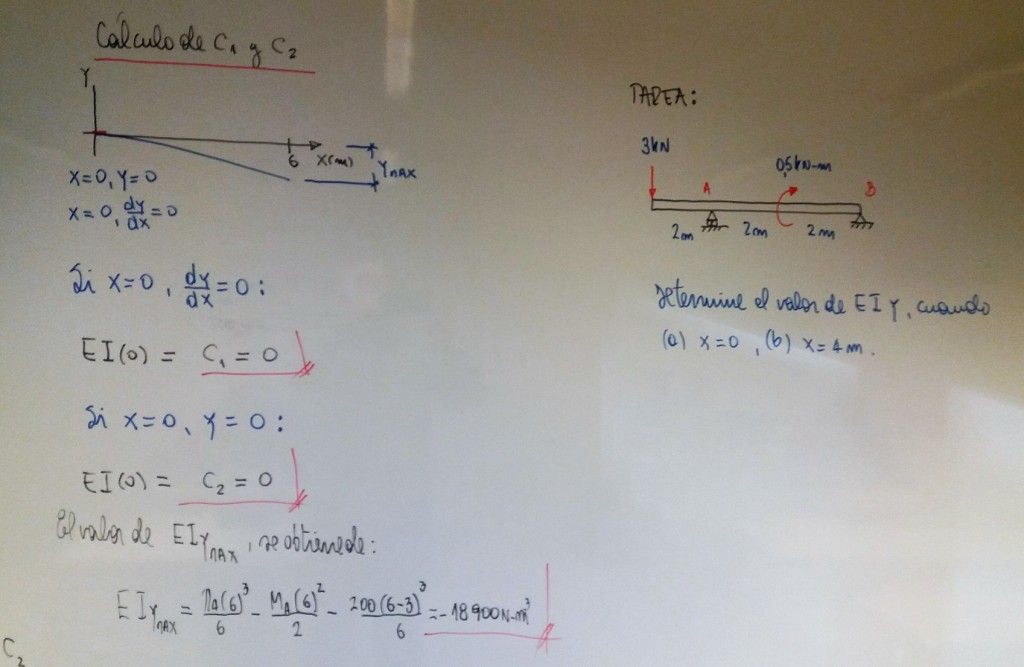 Cálculo de C₁ y C₂
Y
6 X(m)
YMAX
X=0, Y=0
X=0, dy/dx=0
Si X=0, dy/dx=0:
EI(0) = C₁ = 0
Si X=0, Y=0:
EI(0) = C₂ = 0
El valor de EIYMAX, se obtiene de:
EIYMAX = RA(6)³/6 - MA(6)²/2 - 200(6-3)³/6 = -18900N-m³
C₂
TAREA:
3kN
0,5kN-m
A
B
2m 2m 2m
Determine el valor de EIY, cuando
(a) X=0, (b) X=4m.